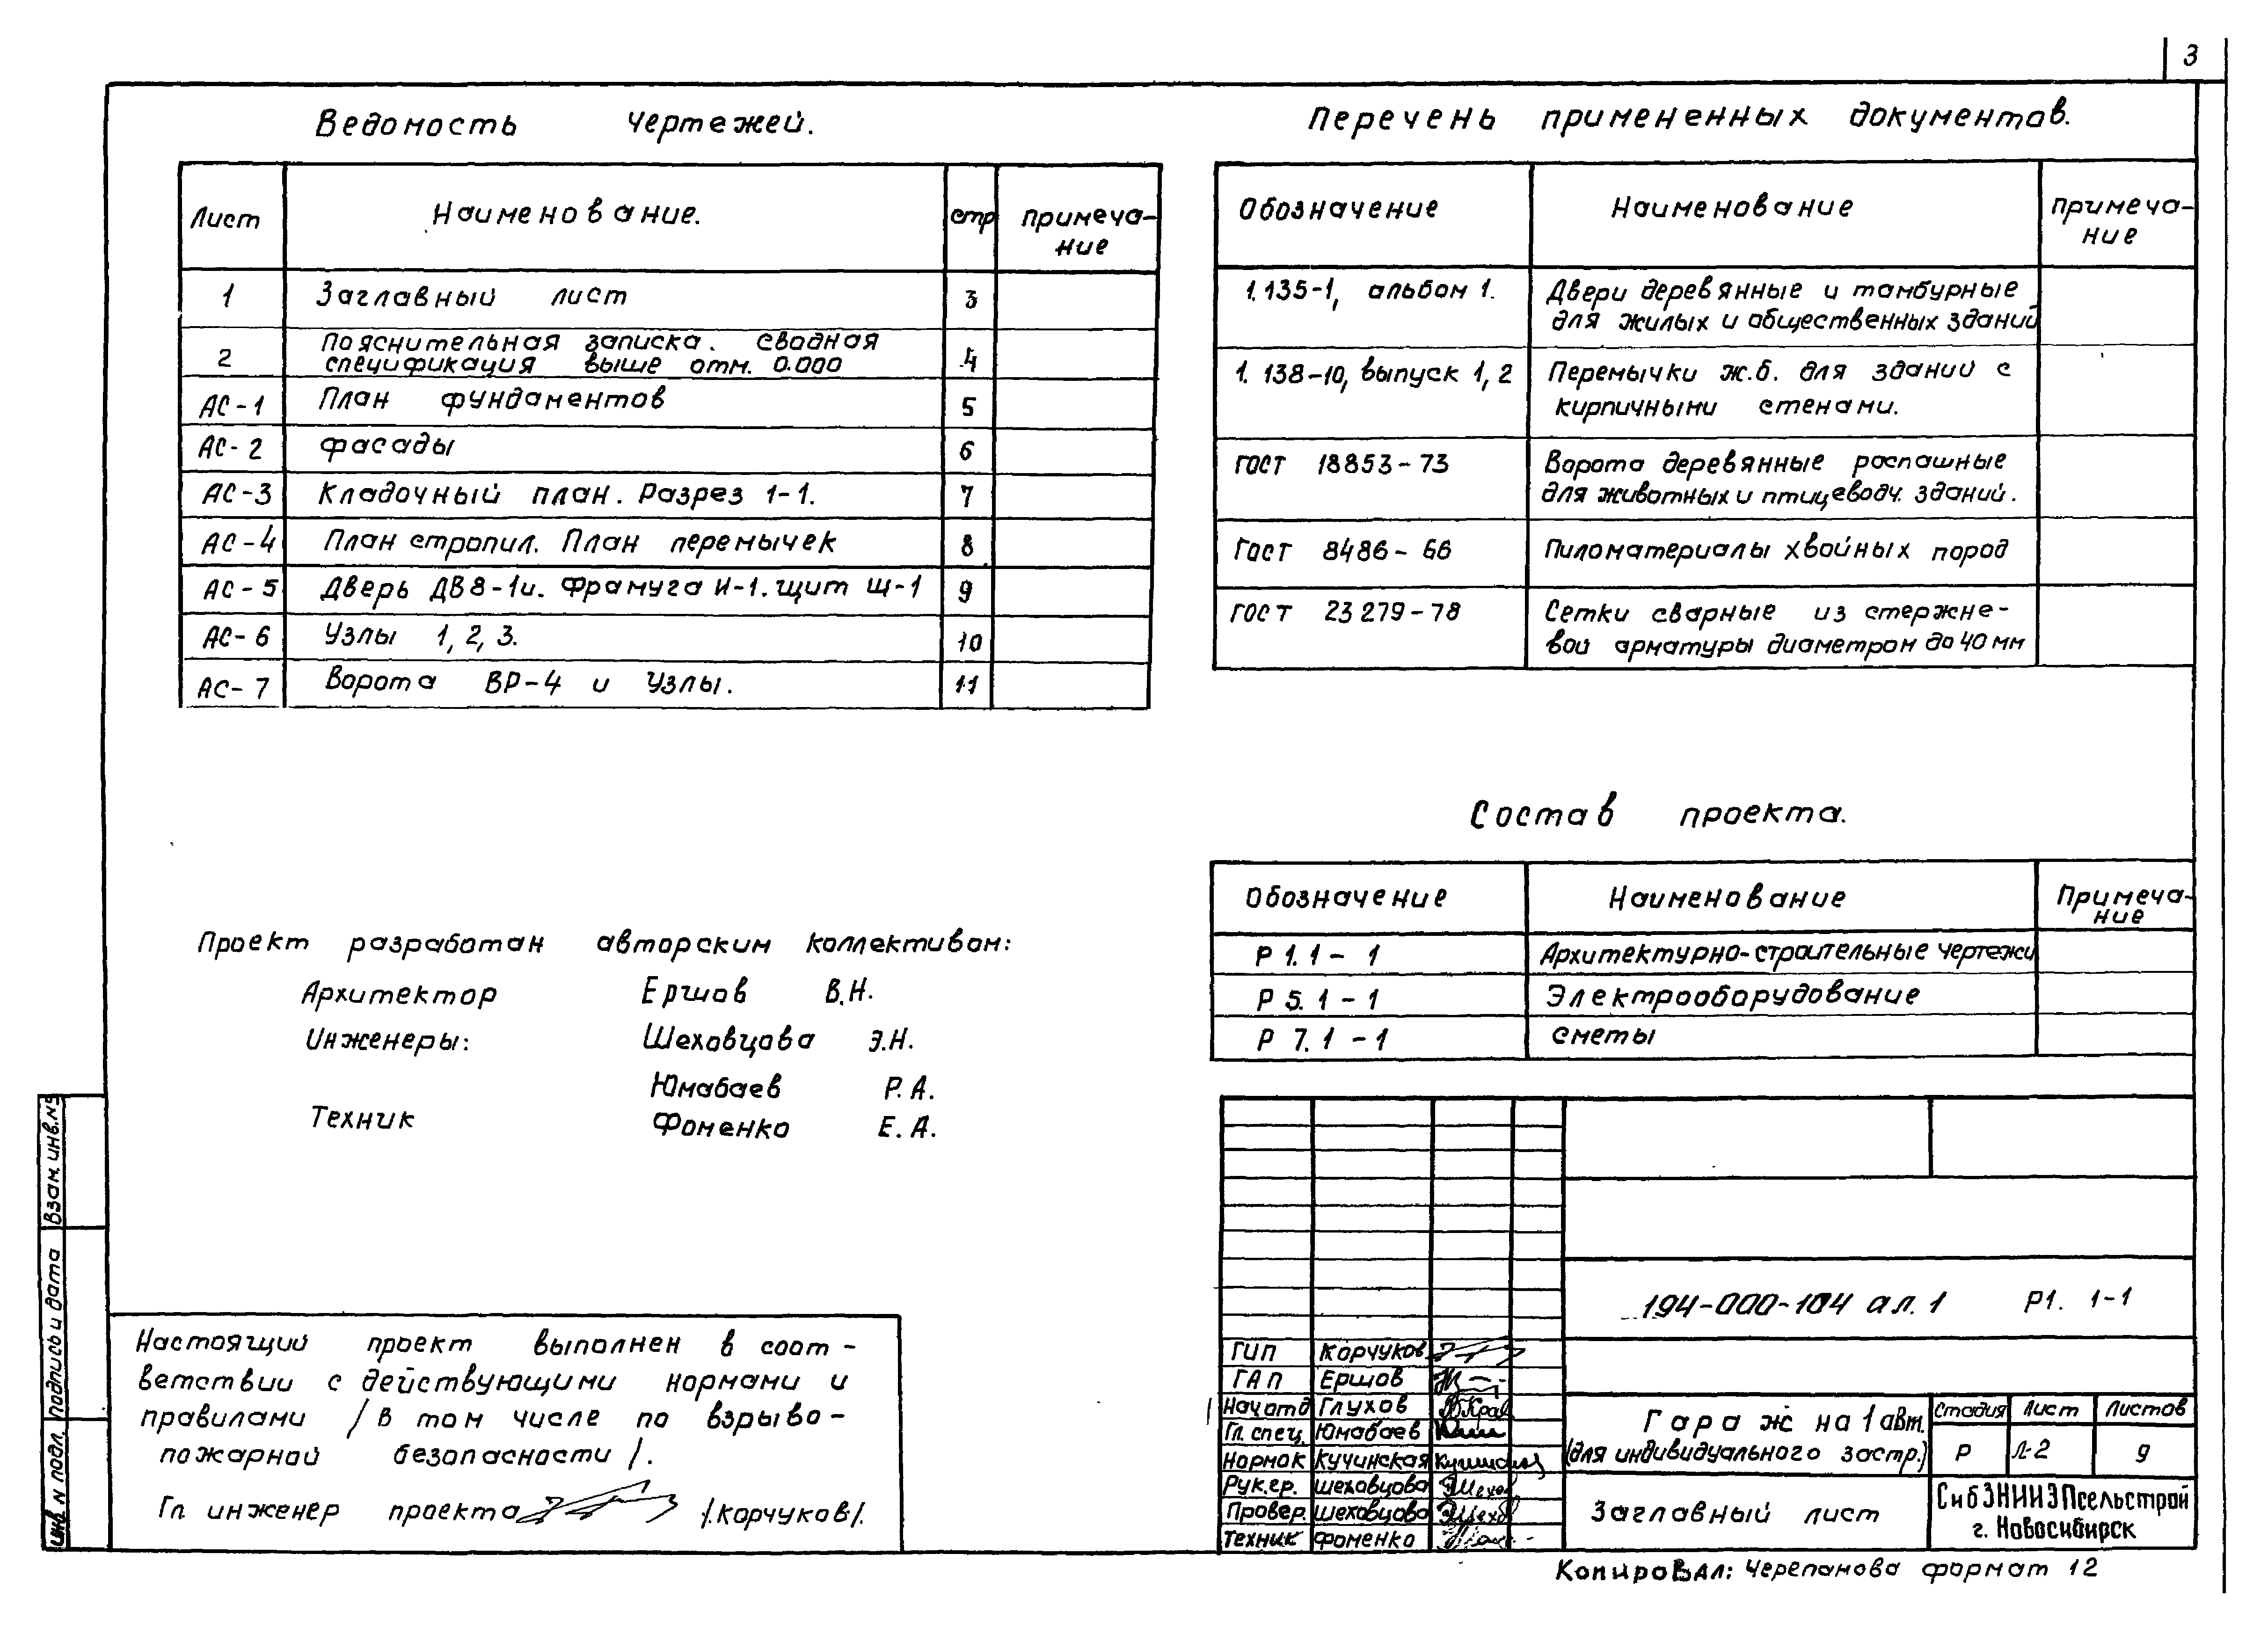 3
Ведомость чертежей.
Лист Наименование. стр примеча-
ние
1 Заглавный лист 3
2 Пояснительная записка. сводная
спецификация выше отм. 0.000 4
АС-1 План фундаментов 5
АС-2 Фасады 6
АС-3 Кладочный план. Разрез 1-1. 7
АС-4 План стропил. План перемычек 8
АС-5 Дверь ДВ8-1и. Фрамуга И-1. щит Щ-1 9
АС-6 Узлы 1, 2, 3. 10
АС-7 Ворота ВР-4 и Узлы. 11
Перечень примененных документов.
Обозначение Наименование примеча-
ние
1.135-1, альбом 1. Двери деревянные и тамбурные
для жилых и общественных зданий
1.138-10, выпуск 1, 2 Перемычки ж.б. для зданий с
кирпичными стенами.
ГОСТ 18853-73 Ворота деревянные распашные
для животных и птицеводч. зданий.
Гост 8486-66 Пиломатериалы хвойных пород
ГОСТ 23279-78 Сетки сварные из стержне-
вой арматуры диаметром до 40 мм
Состав проекта.
Обозначение Наименование Примеча-
ние
Р 1.1-1 Архитектурно-строительные чертежи
Р 5.1-1 Электрооборудование
Р 7.1-1 сметы
Проект разработан авторским коллективом:
Архитектор Ершов В.Н.
Инженеры: Шеховцова Э.Н.
Юмабаев Р.А.
Техник Фоменко Е.А.
Настоящий проект выполнен в соот-
ветствии с действующими нормами и
правилами /в том числе по взрыво-
пожарной безопасности/.
Гл. инженер проекта /.Корчуков./
Взам. инв.№
Подпись и дата
инв N подл.
194-000-104 ал.1 Р1. 1-1
ГИП Корчуков
ГАП Ершов
Нач отд Глухов
Гл. спец. Юмабаев
Нормок Кучинская
Рук.гр. шеховцова
Провер. шеховцова
Техник Фоменко
Гараж на 1 авт.
(для индивидуального застр.)
Стадия Лист Листов
Р Л-2 9
Заглавный лист
СибЗНИИЭПсельстрой
г. Новосибирск
Копировал: Черепанова формат 12